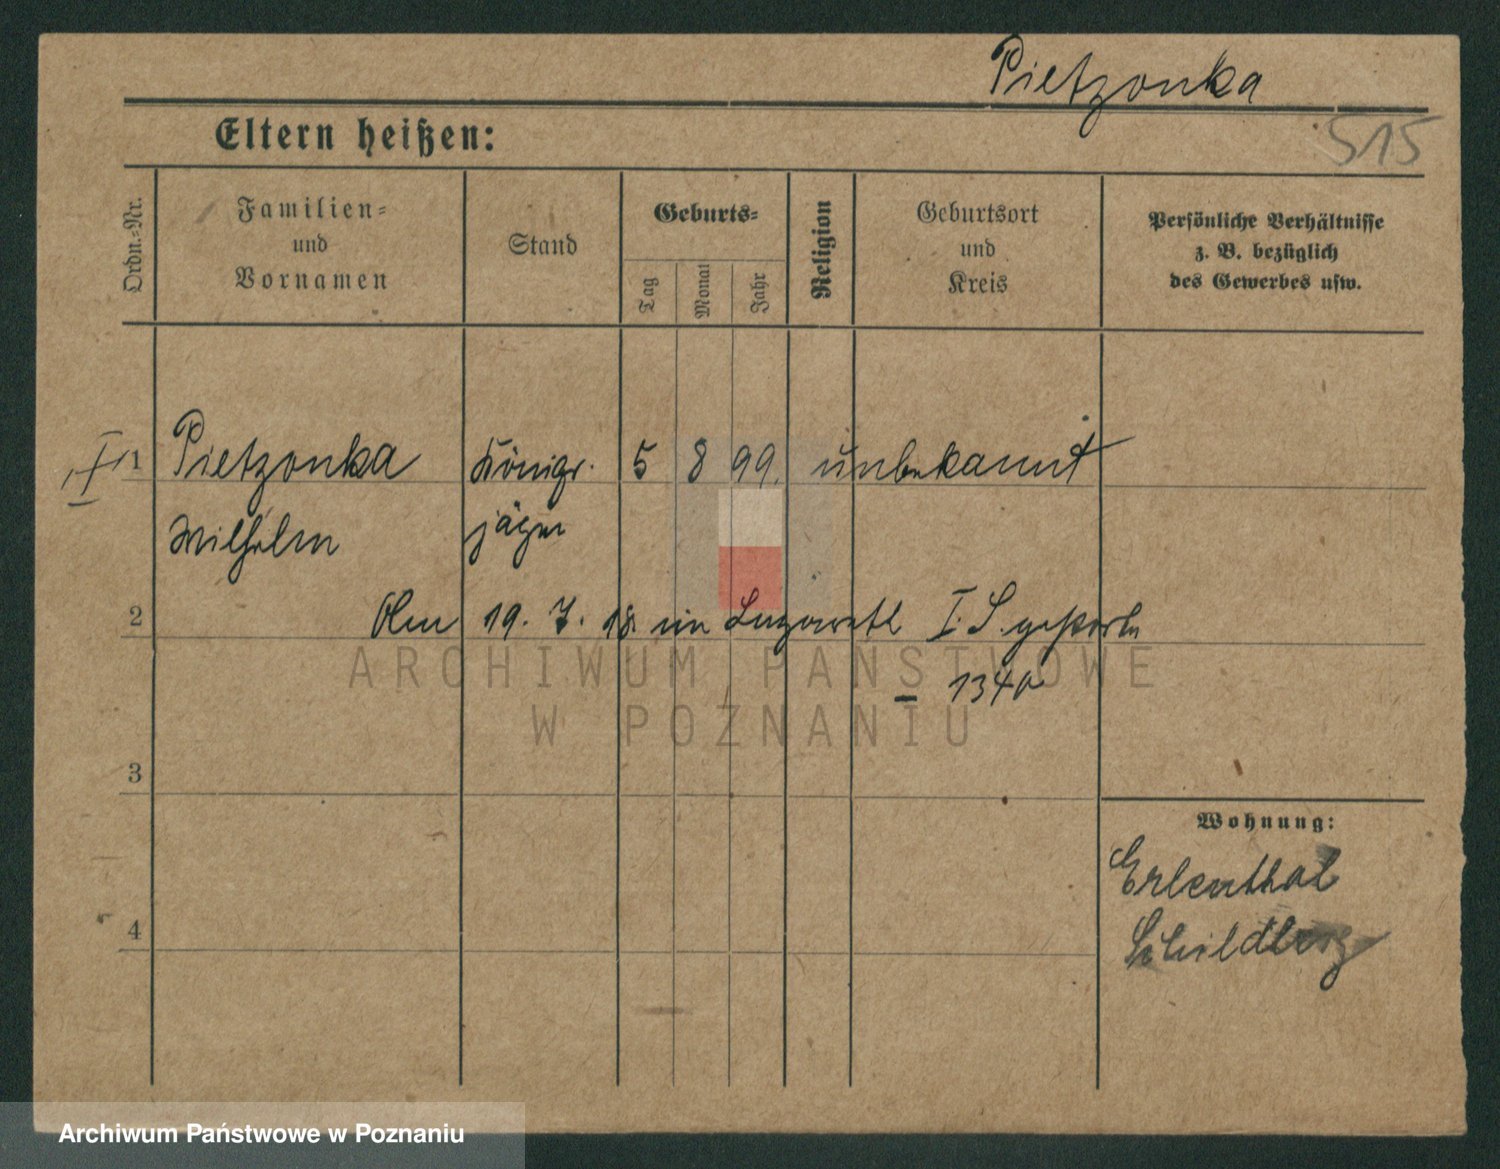 Pietzonka
515
Eltern heißen:
Ordn.-Nr.
Familien-
und
Vornamen
Stand
Geburts-
Tag
Monat
Jahr
Religion
Geburtsort
und
Kreis
Persönliche Verhältnisse
z. B. bezüglich
des Gewerbes usw.
1 Pietzonka Königr. 5 8 99. unbekannt
Wilhelm jäger
2 Am 19. 7. 18. im Lazarett I. S. gestorben
– 1340
ARCHIWUM PAŃSTWOWE
W POZNANIU
3
Wohnung:
Erlenthal
4 Schildberg
Archiwum Państwowe w Poznaniu